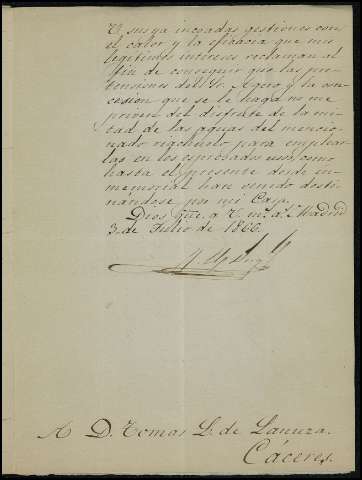 V. sus ya incoadas gestiones con
el calor y la eficacia que mis
legítimos intereses reclaman al
fin de conseguir que las pre-
tensiones del Sr. Agero y la con-
cesión que se le haga no me
priven del disfrute de la mi-
tad de las aguas del mencio-
nado riachuelo para emplear-
las en los espresados usos, como
hasta el presente desde in-
memorial han venido desti-
nándose por mi Casa.
Dios gue. a V. m.s a.s Madrid
3 de Julio de 1866.
A D. Tomas L. de Lanuza.
Cáceres.